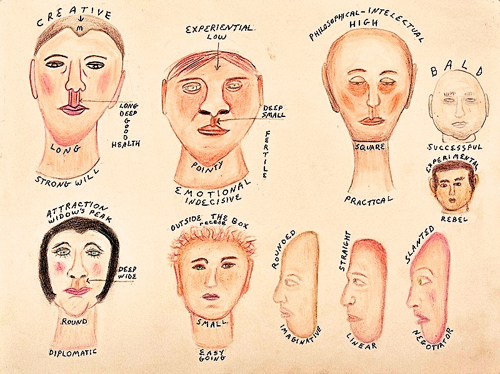 CREATIVE
M
LONG
DEEP
GOOD
HEALTH
LONG
STRONG WILL
EXPERIENTIAL
LOW
DEEP
SMALL
FERTILE
POINTY
EMOTIONAL
INDECISIVE
PHILOSOPHICAL-INTELECTUAL
HIGH
SQUARE
PRACTICAL
BALD
SUCCESSFUL
EXPERIMENTAL
REBEL
ATTRACTION
WIDOW'S PEAK
DEEP
WIDE
ROUND
DIPLOMATIC
OUTSIDE THE BOX
RECEDE
SMALL
EASY
GOING
ROUNDED
IMAGINATIVE
STRAIGHT
LINEAR
SLANTED
NEGOTIATOR